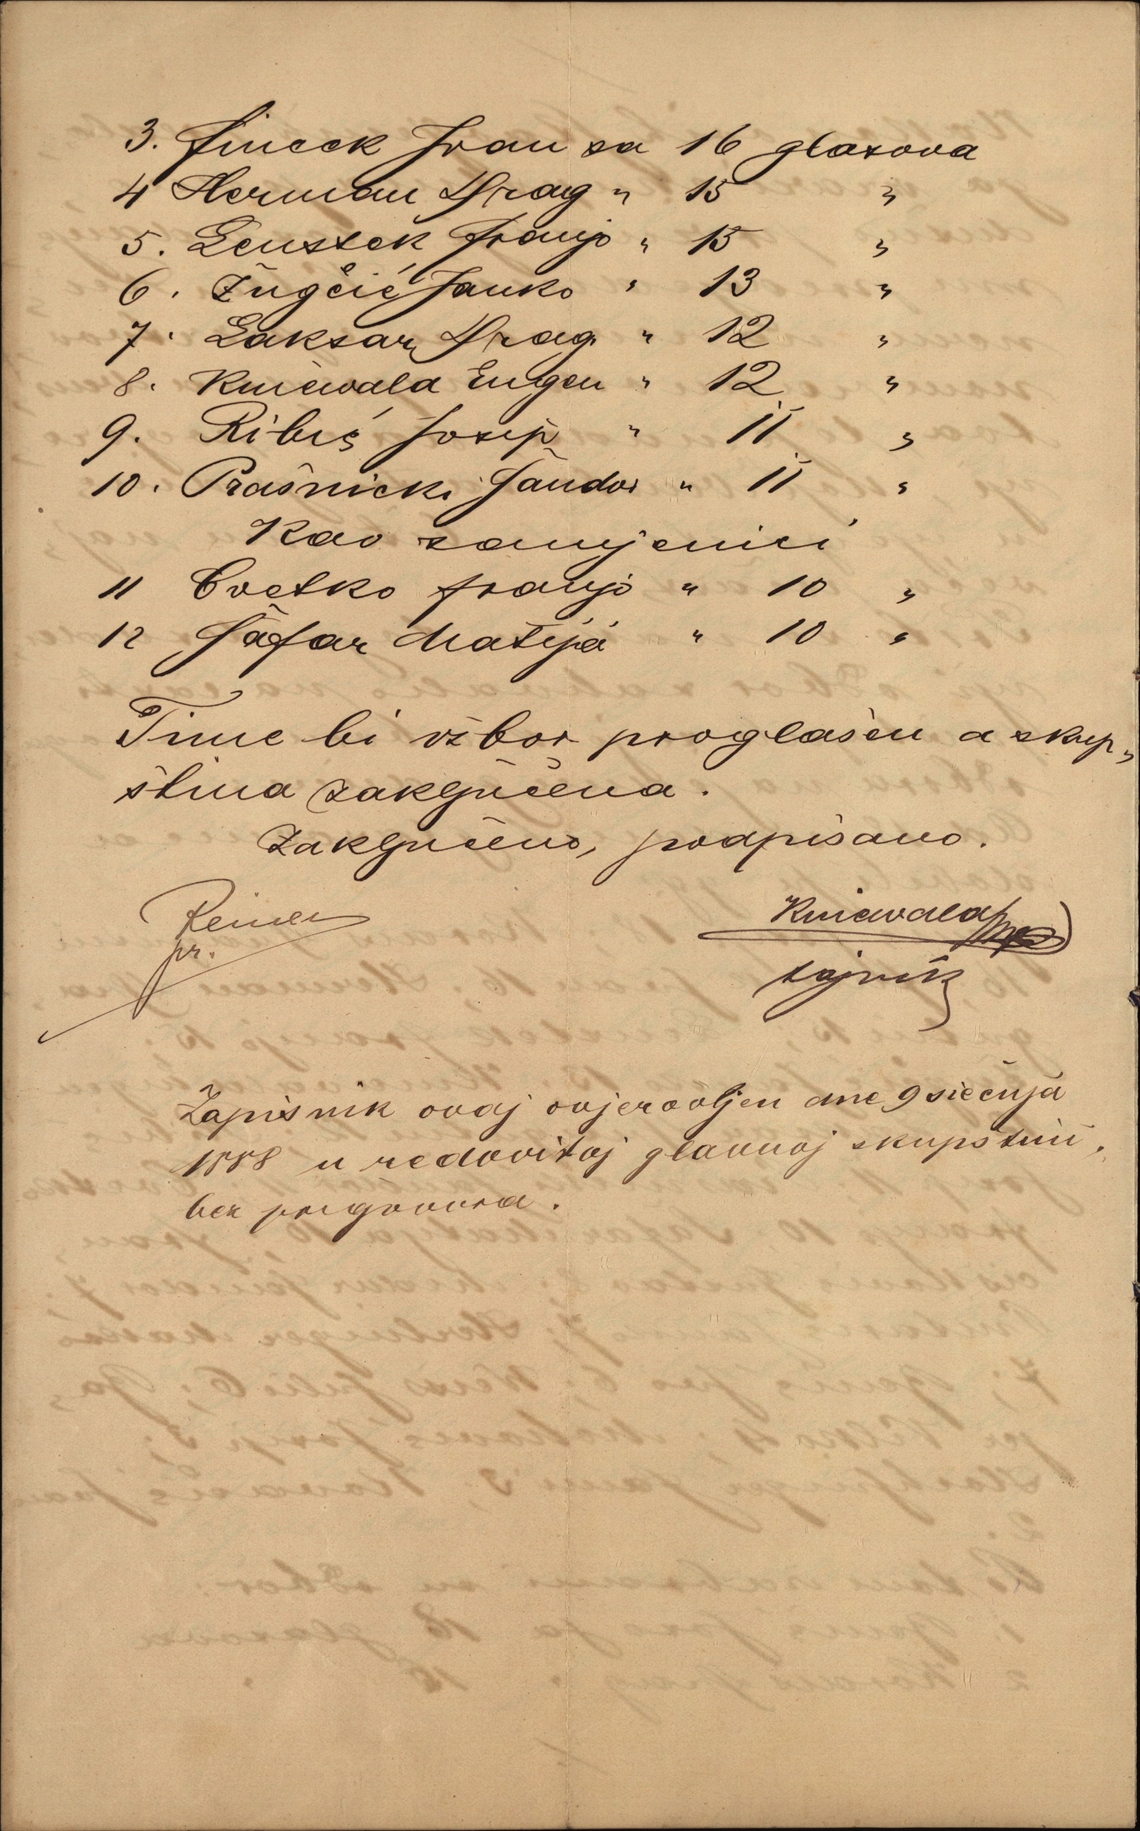 3. Jineck Ivan sa 16 glasova
4 Herman Drag " 15 "
5. Leustek Franjo " 15 "
6. Žugčić Janko " 13 "
7. Laksar Drag. " 12 "
8. Kniewala Eugen " 12 "
9. Ribić Josip " 11 "
10. Prašnicki Šandor " 11 "
Kao zamjenici
11 Cvetko Franjo " 10 "
12 Šafar Matija " 10 "
Time bi izbor proglašen a skup„
ština zaključena.
Zaključeno, podpisano.
pr.
Kniewald
tajnik
Zapisnik ovaj ovjerovljen dne 9 siečnja
1888 u redovitoj glavnoj skupštini,
bez prigovora.